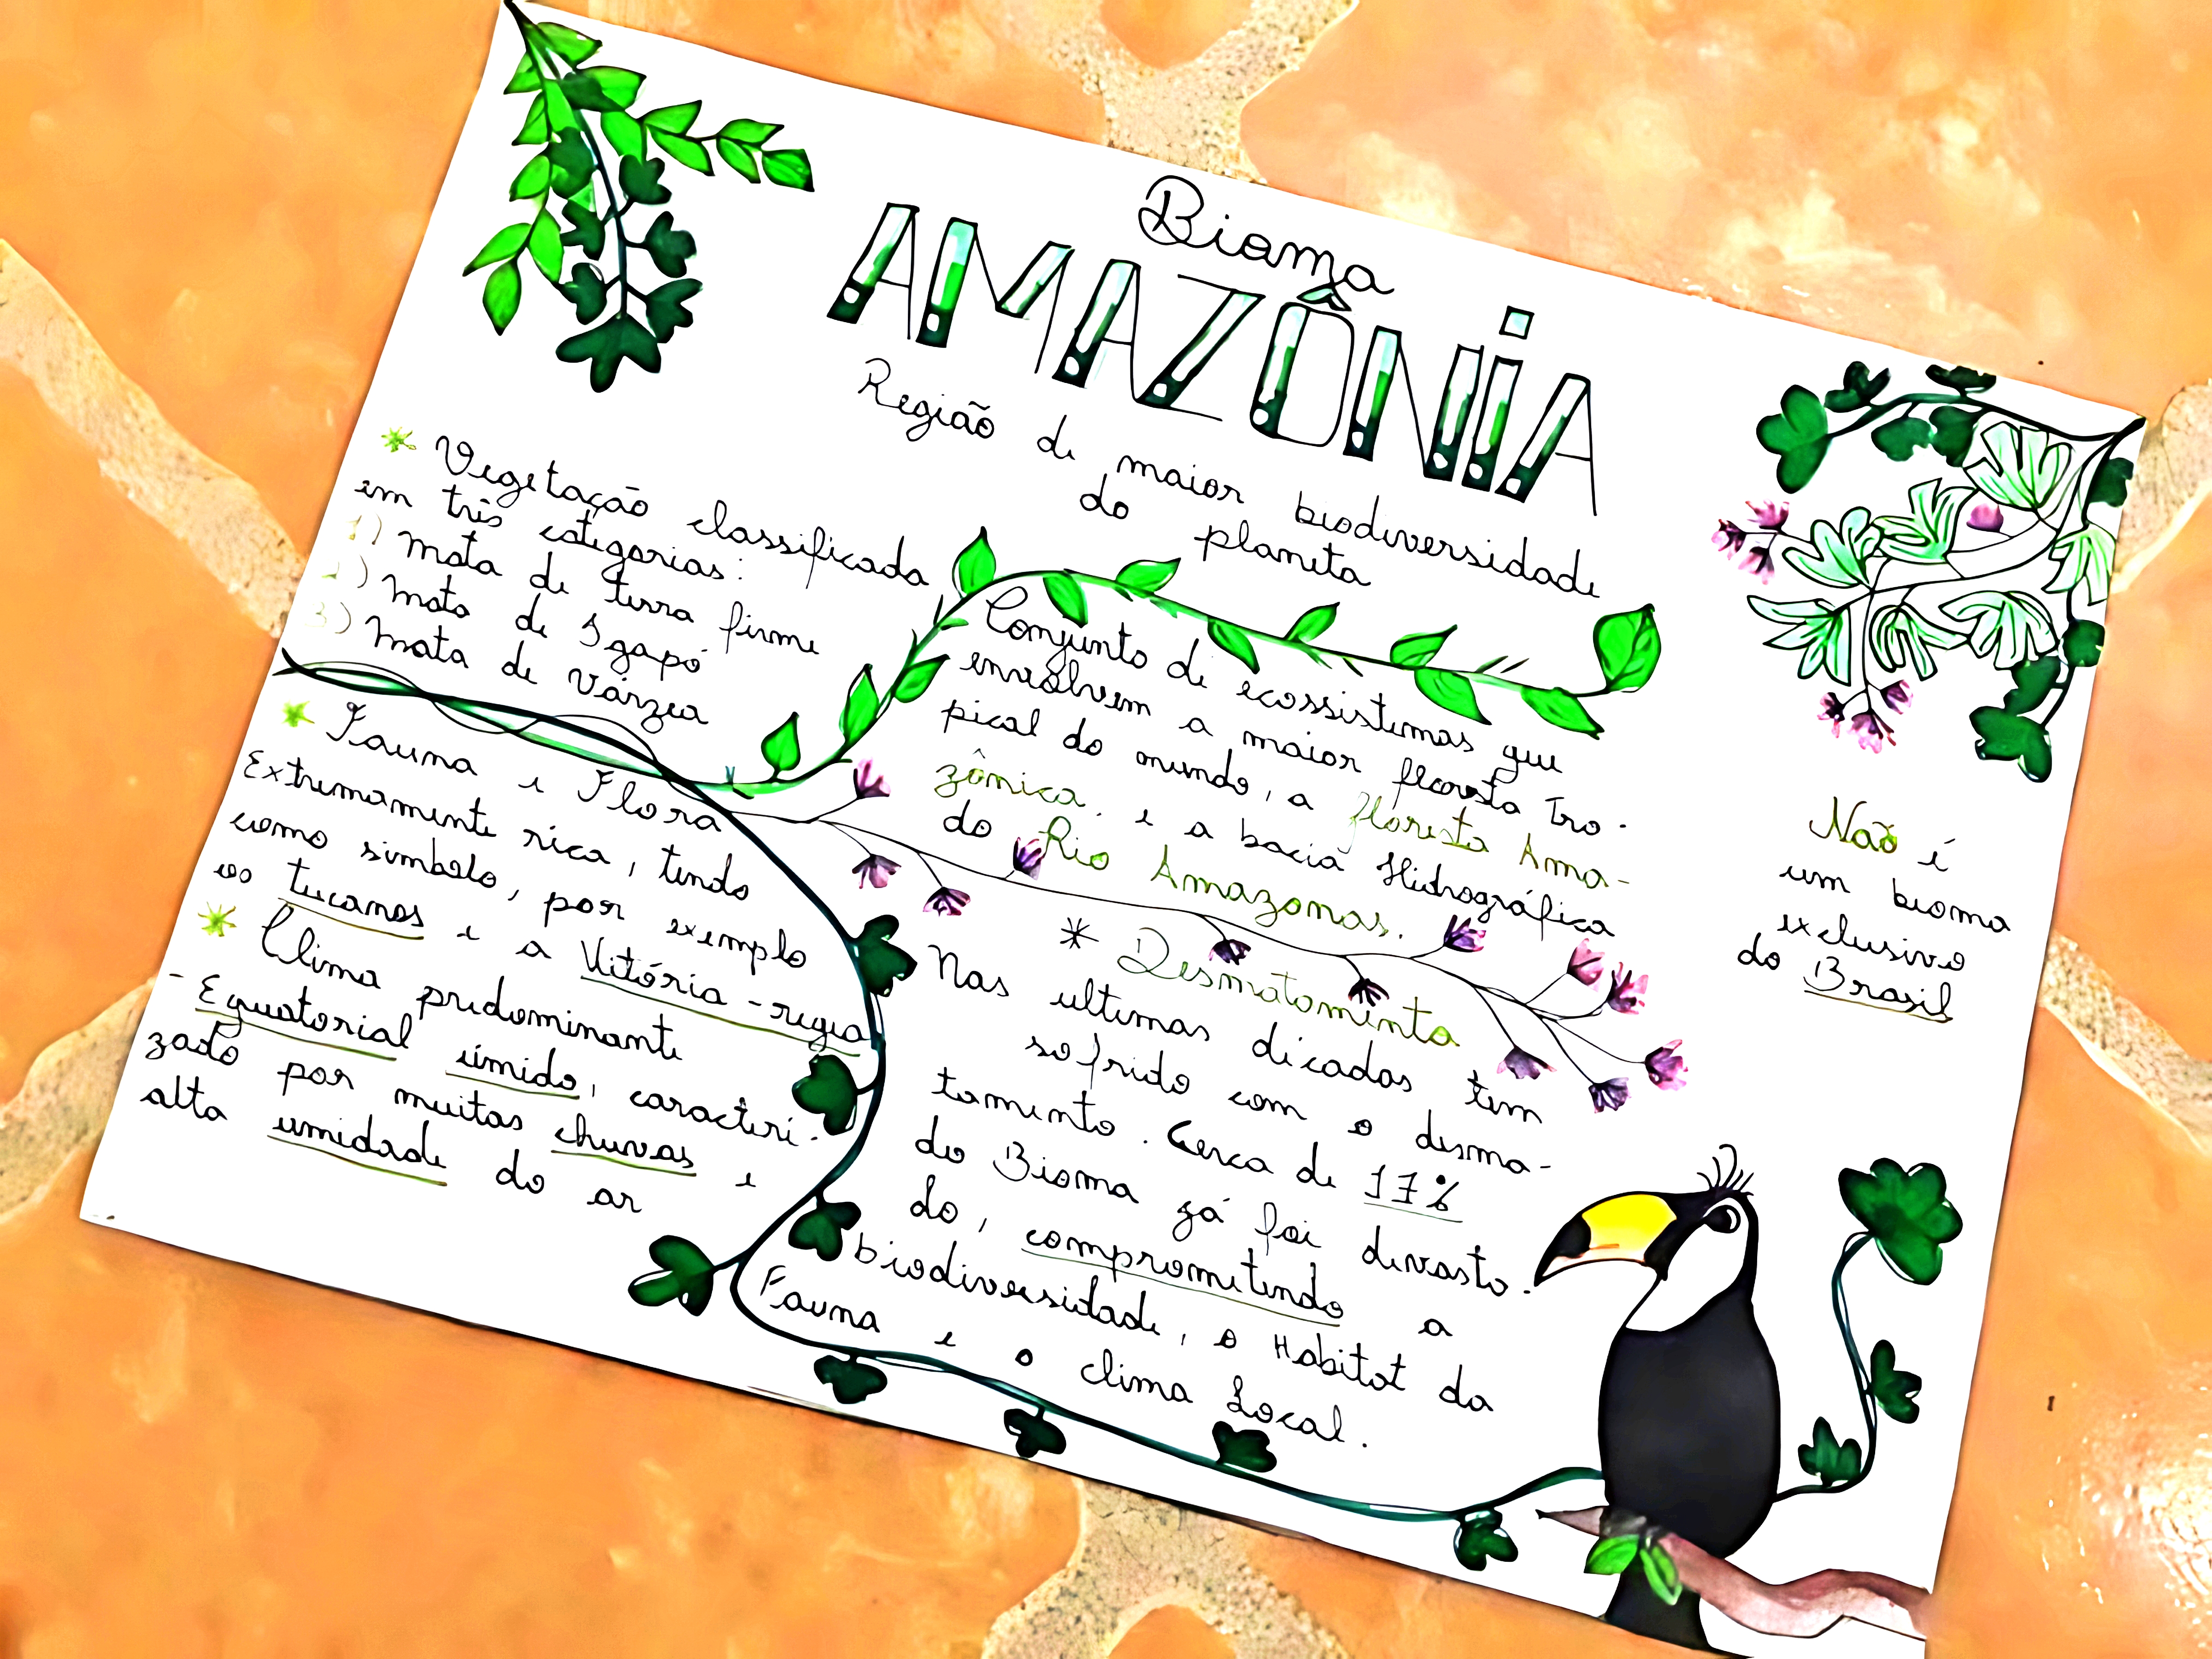 Bioma
AMAZÔNiA
Região de maior biodiversidade
do planeta
* Vegetação classificada
em três categorias:
1) mata de terra firme
2) mata de Igapó
3) mata de várzea
* Fauna e Flora
Extremamente rica, tendo
como simbolo, por exemplo
os tucanos e a Vitória-regia
* Clima predominante
- Equatorial úmido, caracteri-
zado por muitas chuvas e
alta umidade do ar
Conjunto de ecossistemas que
envolvem a maior floresta Tro-
pical do mundo, a floresta Ama-
zônica, e a bacia Hidrográfica
do Rio Amazonas.
* Desmatamento
Nas ultimas décadas tem
sofrido com o desma-
tamento. Cerca de 17%
do Bioma já foi devasta-
do, comprometendo a
biodiversidade, o Habitat da
Fauna e o clima Local.
Não é
um bioma
exclusivo
do Brasil